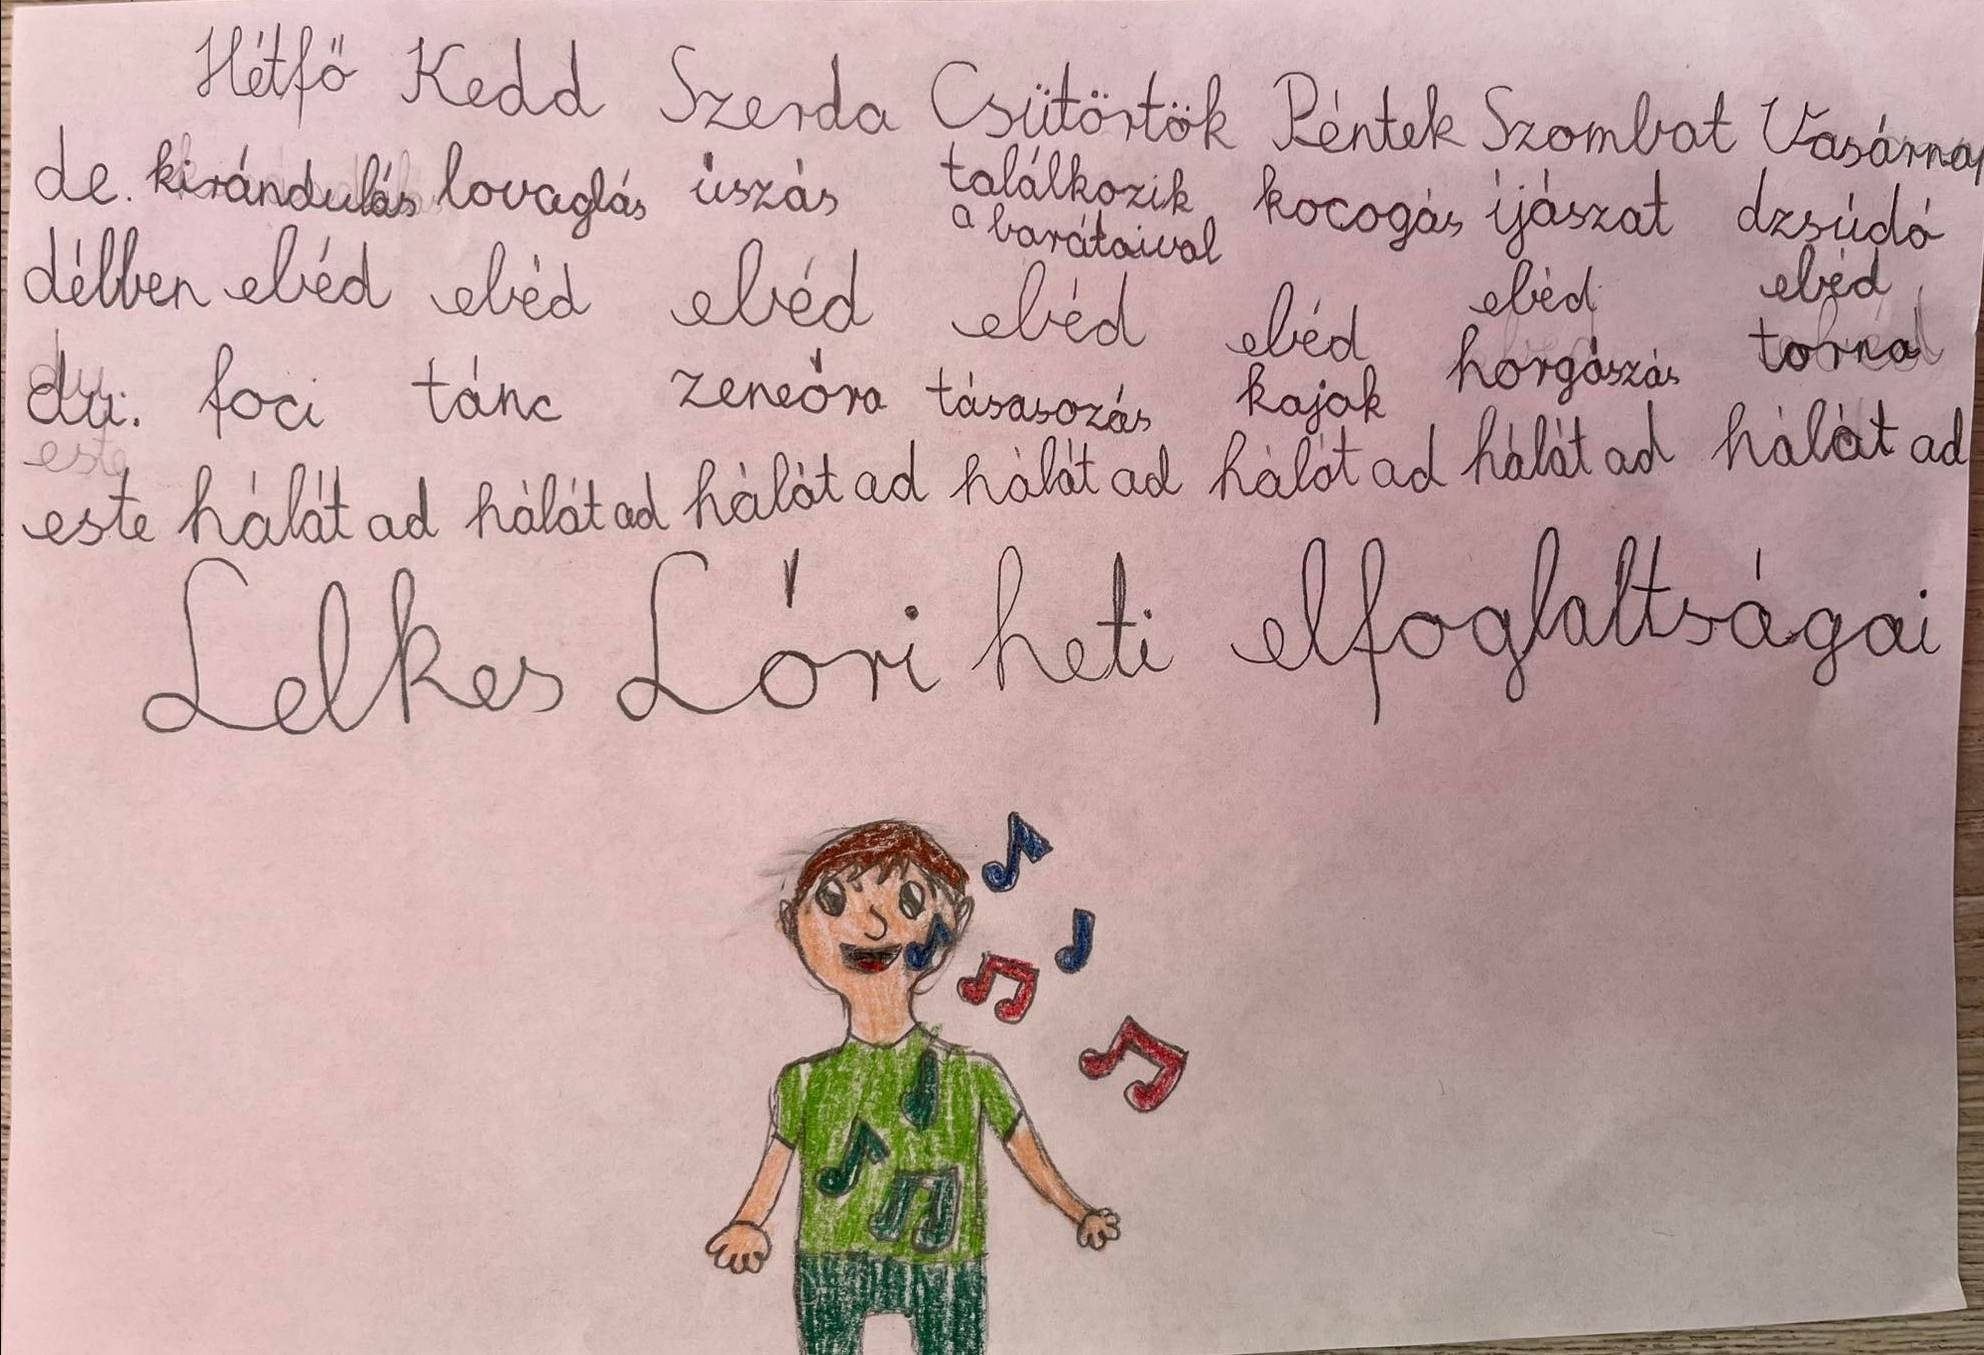 Hétfő Kedd Szerda Csütörtök Péntek Szombat Vasárnap
de. kirándulás lovaglás úszás találkozik a barátaival kocogás íjászat dzsúdó
délben ebéd ebéd ebéd ebéd ebéd ebéd ebéd
du. foci tánc zeneóra tásasozás kajak horgászás torna
este
este hálát ad hálát ad hálát ad hálát ad hálát ad hálát ad hálát ad
Lelkes Lóri heti elfoglaltságai